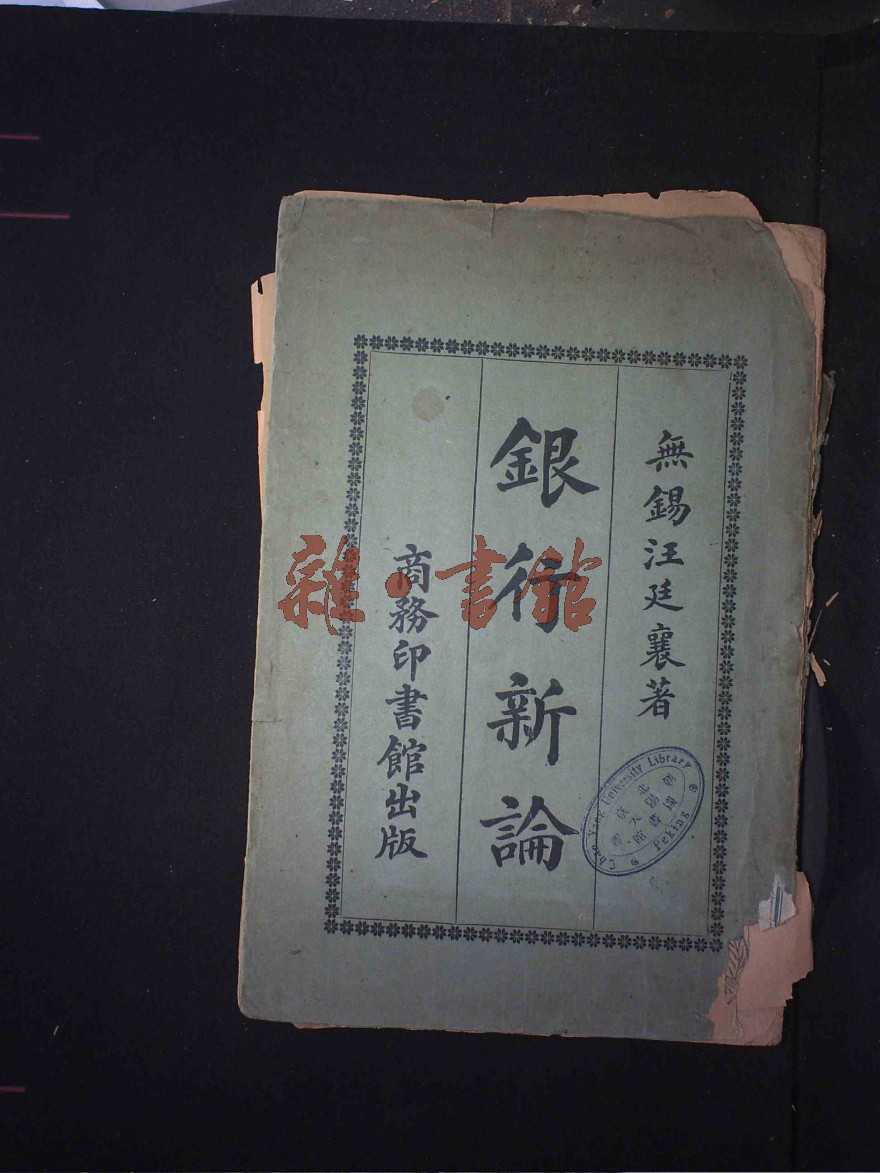 無錫汪廷襄著
銀行新論
商務印書館出版
Chao Yang University Library
Peking
北京朝陽大學圖書館
雜·書館